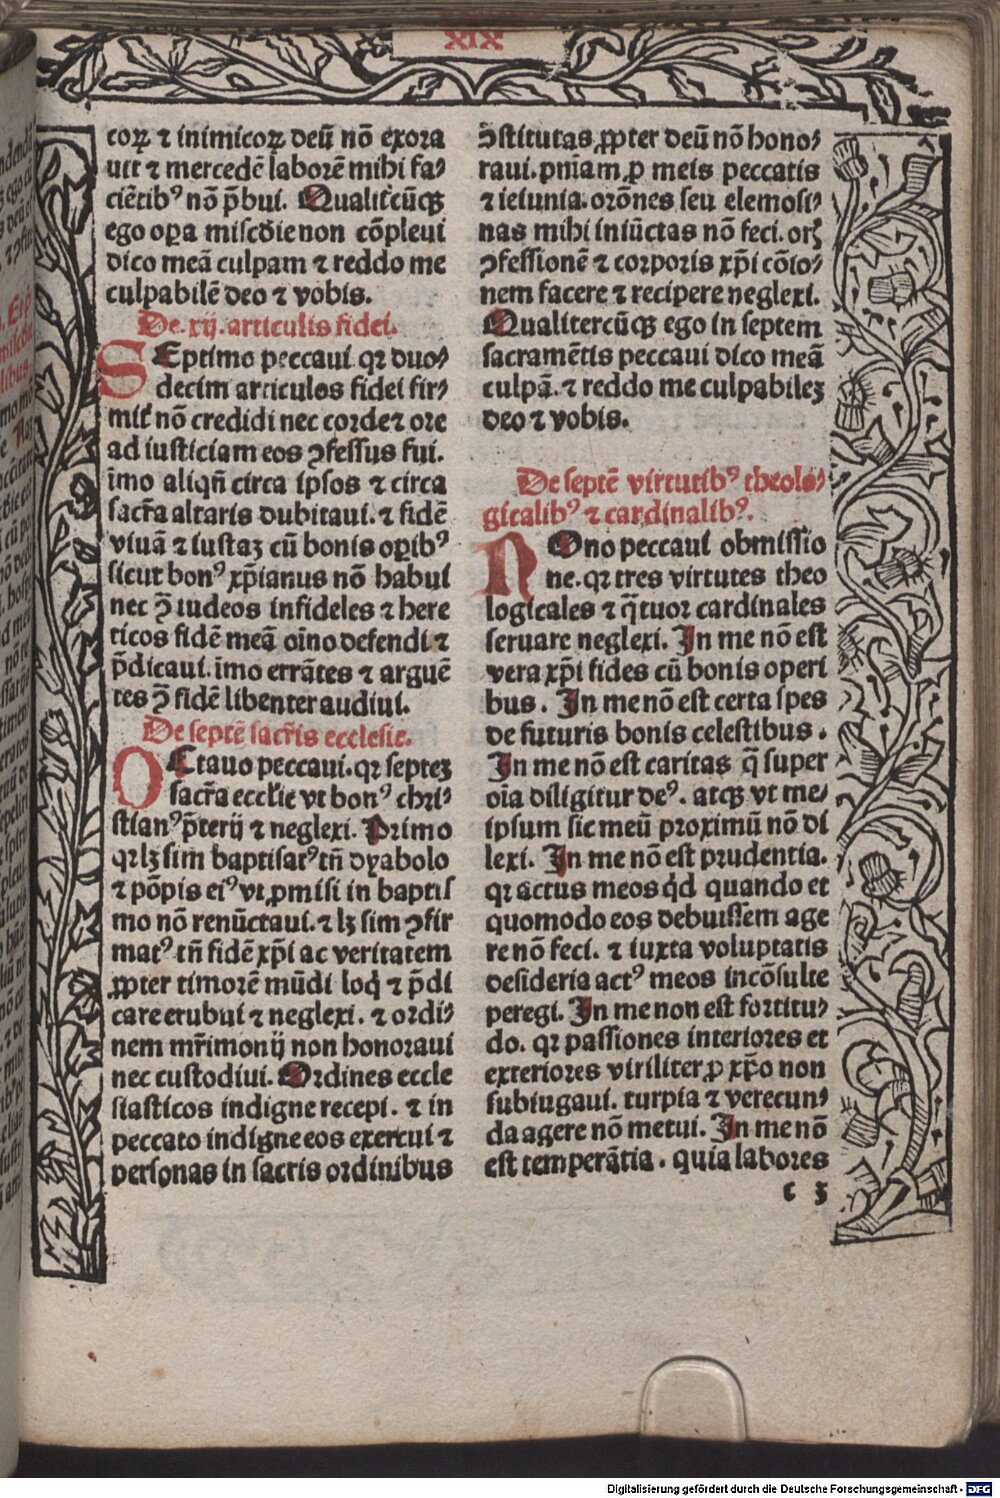 XIX
coꝝ ⁊ inimicoꝝ deū nō exora
uit ⁊ mercedē laborē mihi fa⸗
ciētibꝰ nō p̄bui. Qualit̄cūqꝫ
ego oꝑa miſc̄die non cōpleui
dico meā culpam ⁊ reddo me
culpabilē deo ⁊ vobis.
De. xij. articulis fidei.
SEptimo peccaui qꝛ duo⸗
decim articulos fidei fir⸗
mit̄ nō credidi nec corde ⁊ ore
ad iusticiam eos ꝯfeſſus fui.
īmo aliqn̄ circa ipſos ⁊ circa
ſacr̄a altaris dubitaui. ⁊ fidē
viuā ⁊ iustaꝫ cū bonis oꝑibꝰ
ſicut bonꝰ xp̄ianus nō habui
nec ꝯ̄ iudeos infideles ⁊ here
ticos fidē meā oīno defendi ⁊
p̄dicaui. īmo errātes ⁊ arguē
tes ꝯ̄ fidē libenter audiui.
De ſeptē ſacr̄is eccleſie.
OCtauo peccaui. qꝛ ſepteꝫ
ſacr̄a eccl̄ie vt bonꝰ chri⸗
stianꝰ p̄terij ⁊ neglexi. Primo
qꝛ lꝫ ſim baptiſatꝰ tn̄ dyabolo
⁊ pōpis eiꝰ vt ꝓmiſi in baptiſ
mo nō renūctaui. ⁊ lꝫ ſim ꝯfir
matꝰ tn̄ fidē xp̄i ac veritatem
ꝓpter timorē mūdi loq̇ ⁊ p̄di
care erubui ⁊ neglexi. ⁊ ordi⸗
nem mr̄imonij non honoraui
nec custodiui. Ordines eccle
ſiasticos indigne recepi. ⁊ in
peccato indigne eos exercui ⁊
perſonas in ſacris ordinibus
ꝯstitutas ꝓpter deū nō hono⸗
raui. pn̄iam ꝓ meis peccatis
⁊ ieiunia. orōnes ſeu elemoſi⸗
nas mihi iniūctas nō feci.
ꝯfeſſionē ⁊ corporis xp̄i cōio⸗
nem facere ⁊ recipere neglexi.
Qualitercūqꝫ ego in ſeptem
ſacramētis peccaui dico meā
culpā. ⁊ reddo me culpabileꝫ
deo ⁊ vobis.
De ſeptē virtutibꝰ theolo⸗
gicalibꝰ ⁊ cardinalibꝰ.
NOno peccaui obmiſſio
ne. qꝛ tres virtutes theo
logicales ⁊ q̄tuor cardinales
ſeruare neglexi. In me nō est
vera xp̄i fides cū bonis operi
bus. In me nō est certa ſpes
de futuris bonis celestibus.
In me nō est caritas q̄ ſuper
oīa diligitur deꝰ. atqꝫ vt me⸗
ipſum ſic meū proximū nō di
lexi. In me nō est prudentia.
qꝛ actus meos q̇d quando et
quomodo eos debuiſſem age
re nō feci. ⁊ iuxta voluptatis
deſideria actꝰ meos incōſulte
peregi. In me non est fortitu⸗
do. qꝛ paſſiones interiores et
exteriores viriliter ꝓ xp̄o non
ſubiugaui. turpia ⁊ verecun⸗
da agere nō metui. In me nō
est temperātia. quia labores
c 3
Digitalisierung gefördert durch die Deutsche Forschungsgemeinschaft - DFG